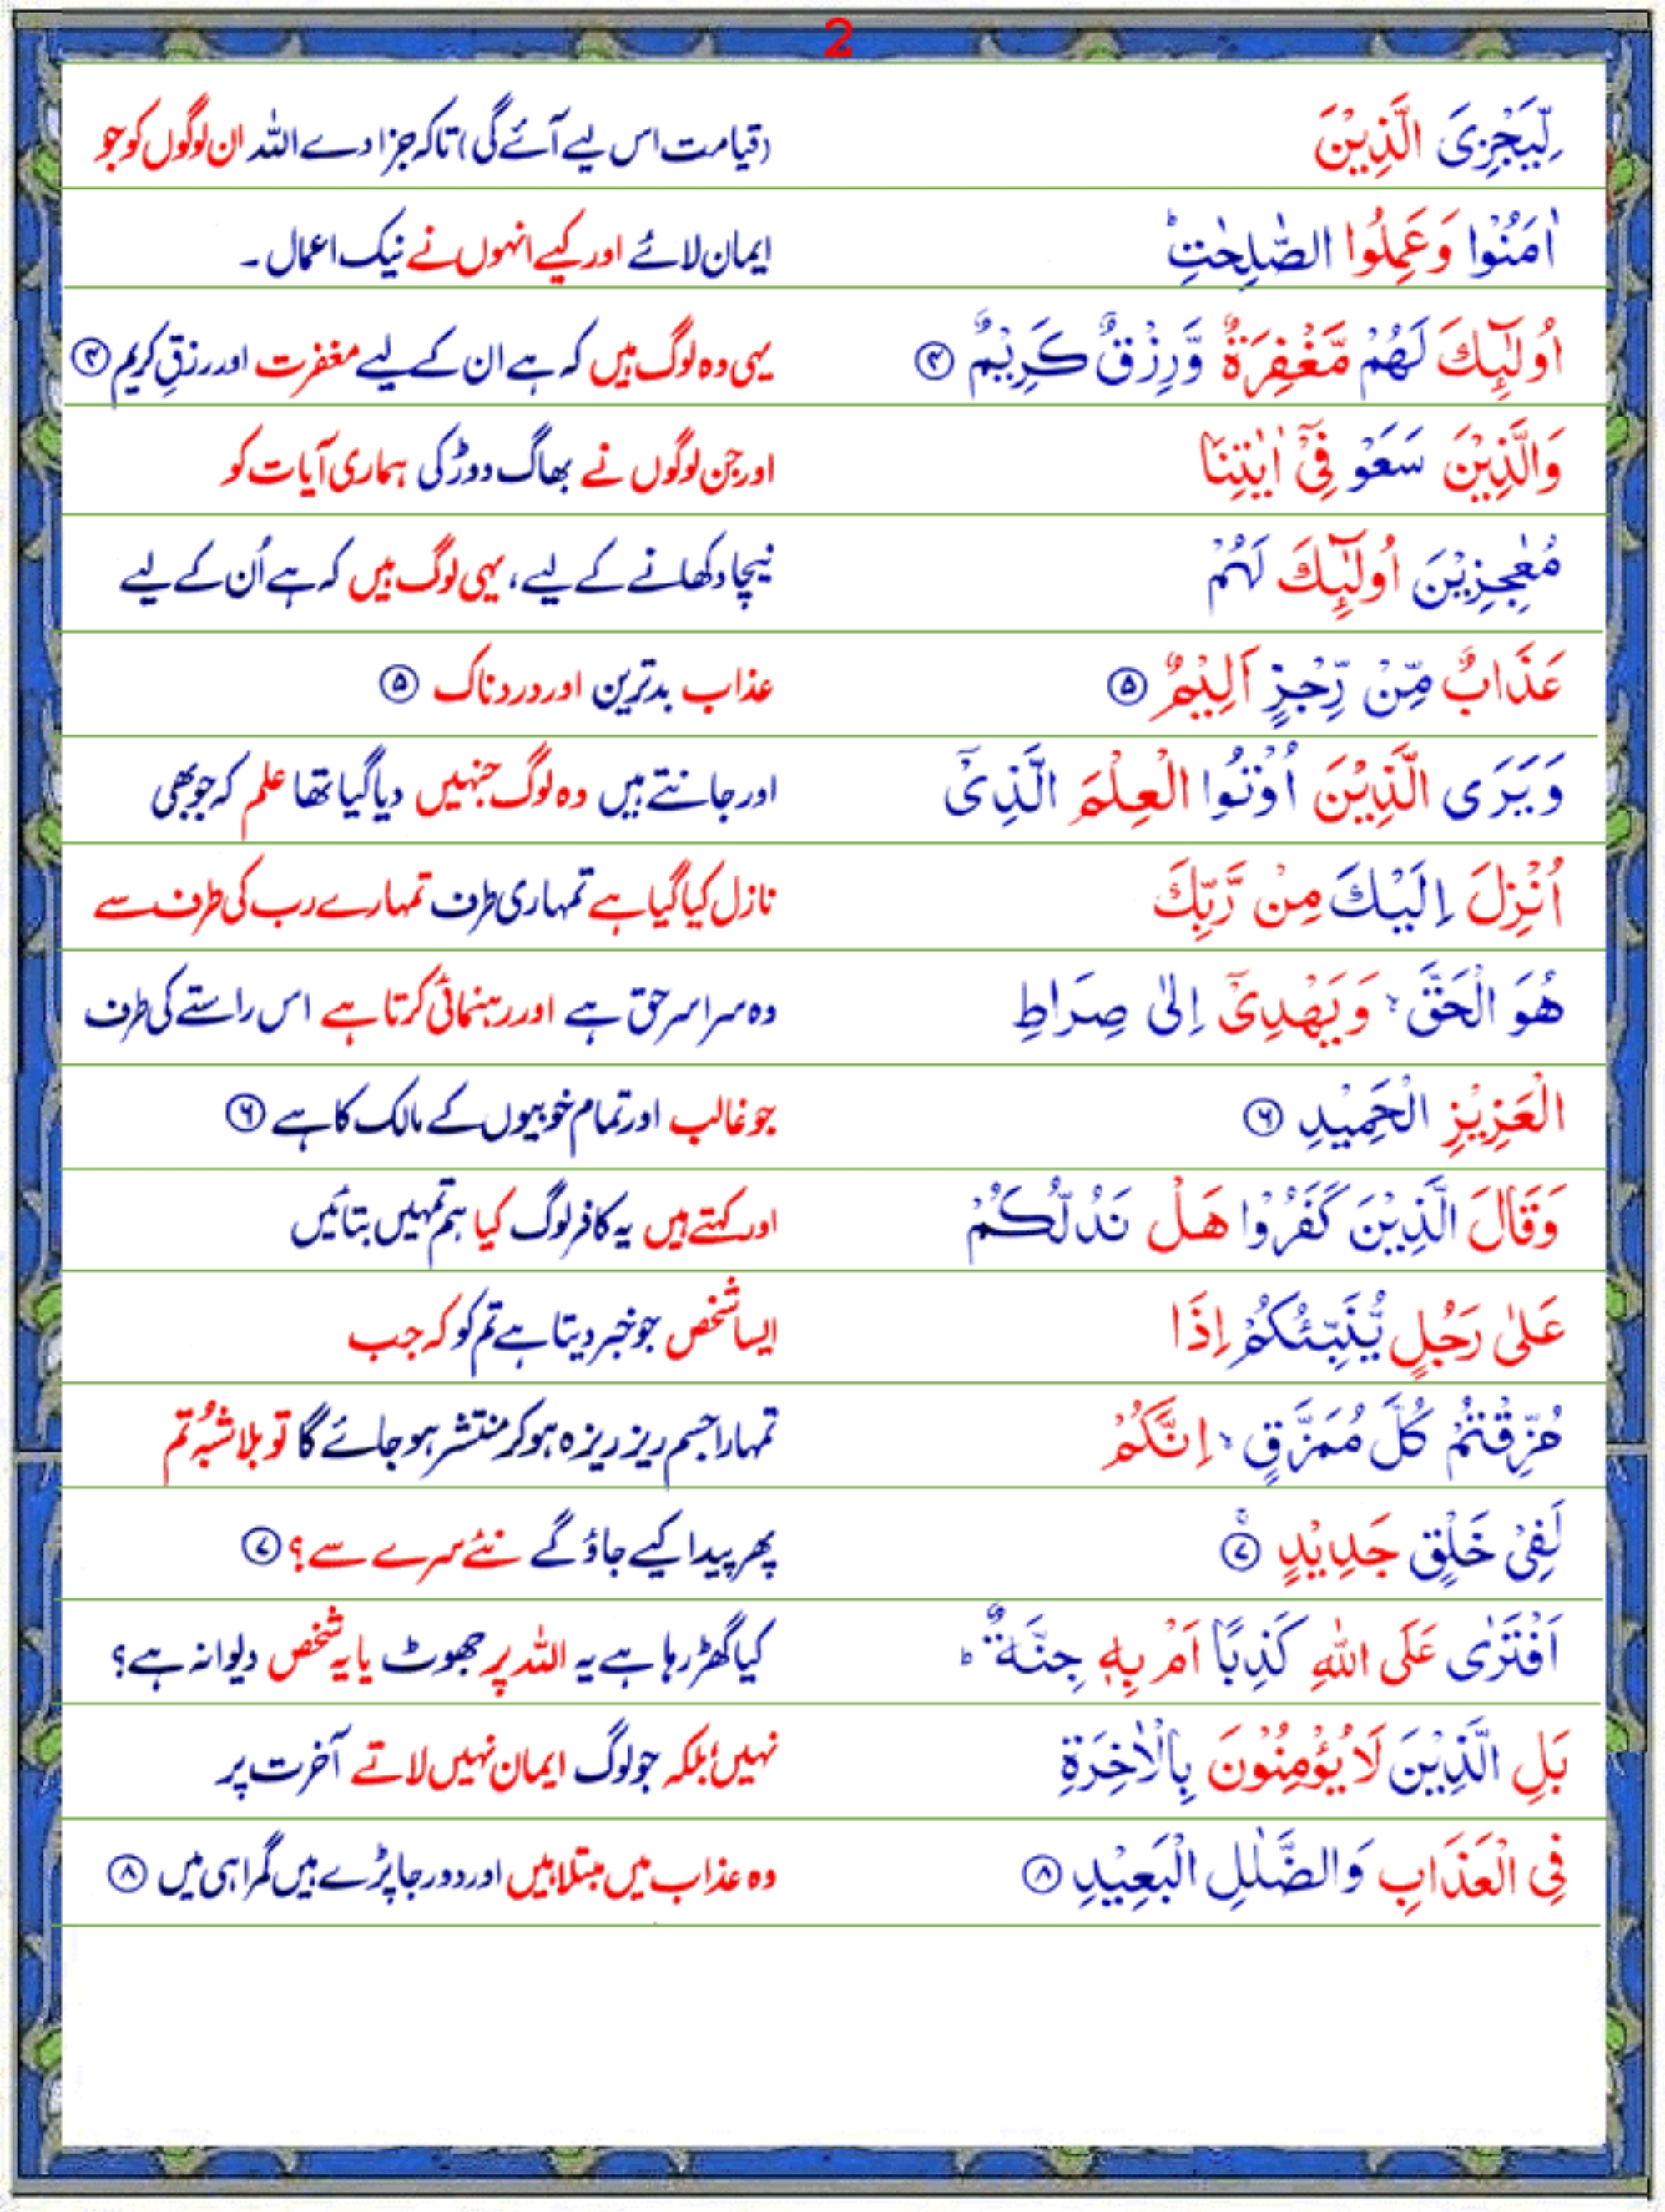 2
لِّيَجْزِىَ الَّذِيْنَ (قیامت اس لیے آئے گی) تاکہ جزا دے اللہ ان لوگوں کو جو
اٰمَنُوْا وَعَمِلُوا الصّٰلِحٰتِؕ ایمان لائے اور کیے انہوں نے نیک اعمال ۔
اُولٰٓئِكَ لَهُمْ مَّغْفِرَةٌ وَّرِزْقٌ كَرِيْمٌ ۴ یہی وہ لوگ ہیں کہ ہے ان کے لیے مغفرت اور رزقِ کریم ۴
وَالَّذِيْنَ سَعَوْ فِىْۤ اٰيٰتِنَا اور جن لوگوں نے بھاگ دوڑ کی ہماری آیات کو
مُعٰجِزِيْنَ اُولٰٓئِكَ لَهُمْ نیچا دکھانے کے لیے، یہی لوگ ہیں کہ ہے اُن کے لیے
عَذَابٌ مِّنْ رِّجْزٍ اَلِيْمٌ ۵ عذاب بدترین اور دردناک ۵
وَيَرَى الَّذِيْنَ اُوْتُوا الْعِلْمَ الَّذِىْۤ اور جانتے ہیں وہ لوگ جنہیں دیا گیا تھا علم کہ جو بھی
اُنْزِلَ اِلَيْكَ مِنْ رَّبِّكَ نازل کیا گیا ہے تمہاری طرف تمہارے رب کی طرف سے
هُوَ الْحَقَّ ۙ وَيَهْدِىْۤ اِلٰى صِرَاطِ وہ سراسر حق ہے اور رہنمائی کرتا ہے اس راستے کی طرف
الْعَزِيْزِ الْحَمِيْدِ ۶ جو غالب اور تمام خوبیوں کے مالک کا ہے ۶
وَقَالَ الَّذِيْنَ كَفَرُوْا هَلْ نَدُلُّكُمْ اور کہتے ہیں یہ کافر لوگ کیا ہم تمہیں بتائیں
عَلٰى رَجُلٍ يُّنَبِّئُكُمْ اِذَا ایسا شخص جو خبر دیتا ہے تم کو کہ جب
مُزِّقْتُمْ كُلَّ مُمَزَّقٍ ۙ اِنَّكُمْ تمہارا جسم ریزہ ریزہ ہو کر منتشر ہو جائے گا تو بلا شبہ تم
لَفِىْ خَلْقٍ جَدِيْدٍ ۷ۚ پھر پیدا کیے جاؤ گے نئے سرے سے؟ ۷
اَفْتَرٰى عَلَى اللّٰهِ كَذِبًا اَمْ بِهٖ جِنَّةٌ ؕ کیا گھڑ رہا ہے یہ اللہ پر جھوٹ یا یہ شخص دیوانہ ہے؟
بَلِ الَّذِيْنَ لَا يُؤْمِنُوْنَ بِالْاٰخِرَةِ نہیں؛ بلکہ جو لوگ ایمان نہیں لاتے آخرت پر
فِى الْعَذَابِ وَالضَّلٰلِ الْبَعِيْدِ ۸ وہ عذاب میں مبتلا ہیں اور دور جا پڑے ہیں گمراہی میں ۸